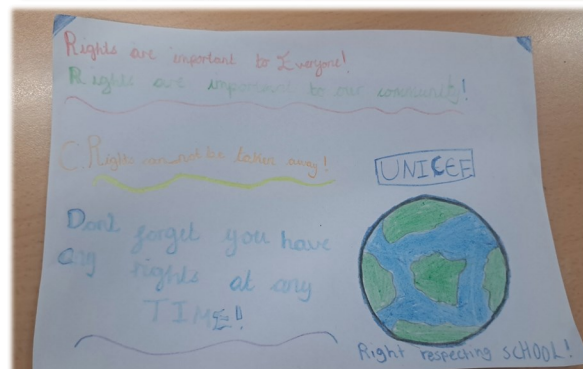 Rights are important to Everyone!
Rights are important to our community!
C.Rights cannot be taken away!
UNICEF
Dont forget you have
any rights at any
TIME!
Right respecting SCHOOL!